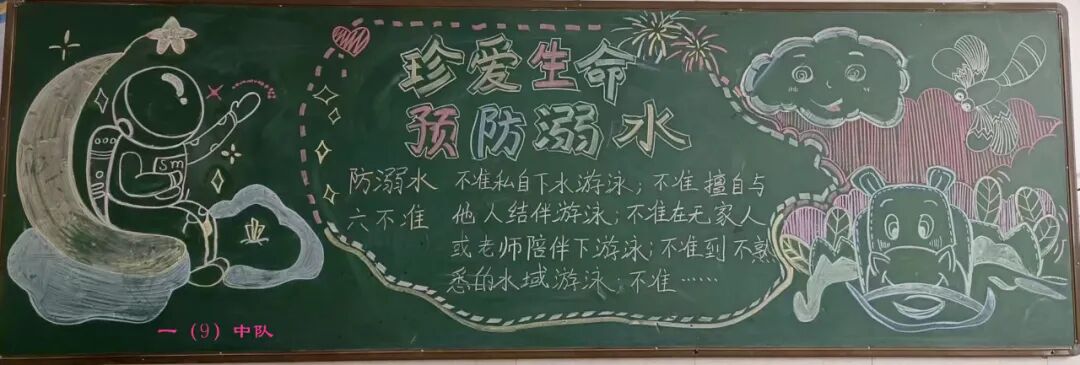 珍爱生命
预防溺水
防溺水
六不准
不准私自下水游泳；不准擅自与
他人结伴游泳；不准在无家人
或老师陪伴下游泳；不准到不熟
悉的水域游泳；不准……
Sm
一（9）中队